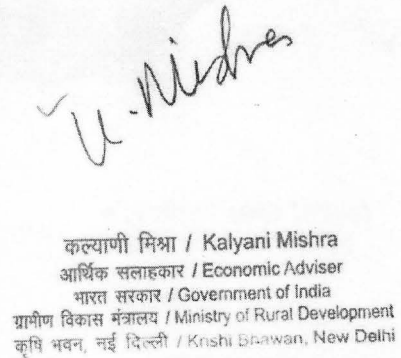 K. Mishra
कल्याणी मिश्रा / Kalyani Mishra
आर्थिक सलाहकार / Economic Adviser
भारत सरकार / Government of India
ग्रामीण विकास मंत्रालय / Ministry of Rural Development
कृषि भवन, नई दिल्ली / Krishi Bhawan, New Delhi